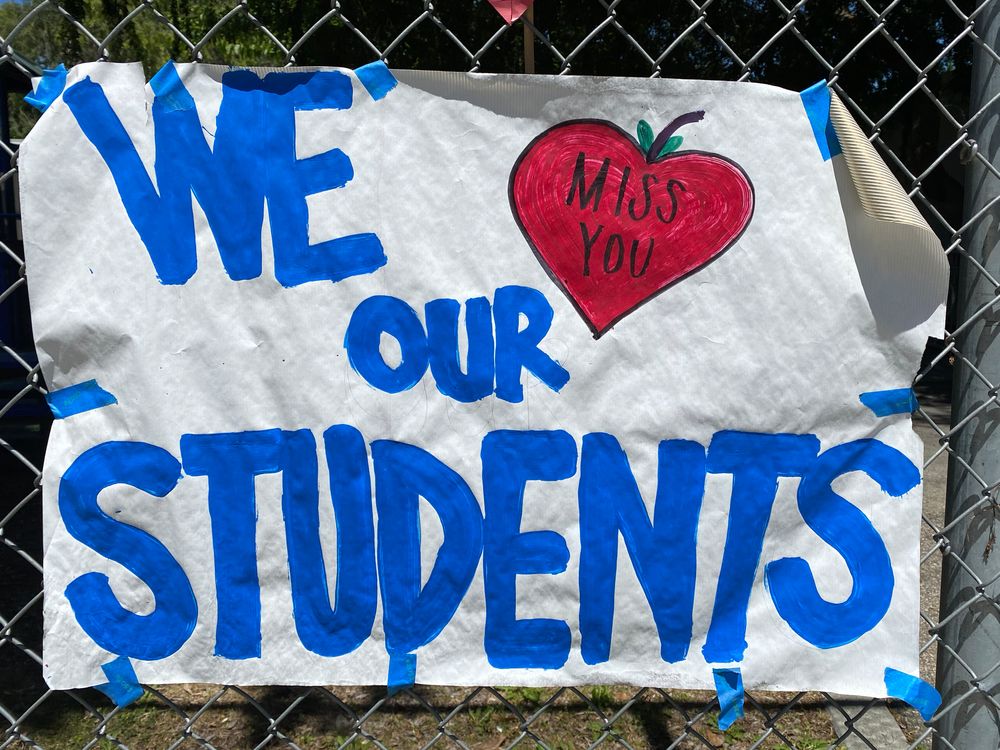 WE
MISS
YOU
OUR
STUDENTS